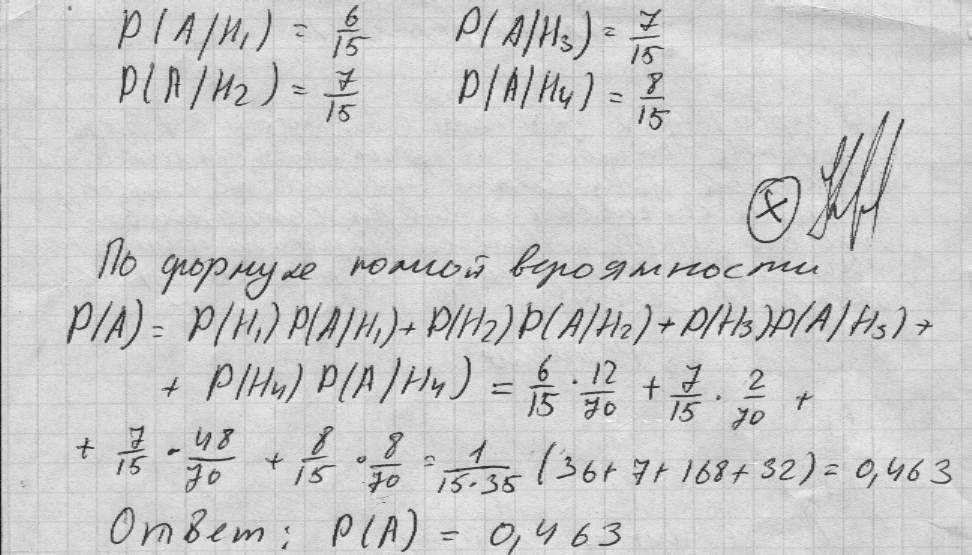 P(A/H₁) = 6/15 P(A/H₃) = 7/15
P(A/H₂) = 7/15 P(A/H₄) = 8/15
X
По формуле полной вероятности
P(A) = P(H₁)P(A/H₁) + P(H₂)P(A/H₂) + P(H₃)P(A/H₃) +
+ P(H₄)P(A/H₄) = 6/15 · 12/70 + 7/15 · 2/70 +
+ 7/15 · 48/70 + 8/15 · 8/70 = 1/15·35 (36+7+168+32) = 0,463
Ответ: P(A) = 0,463